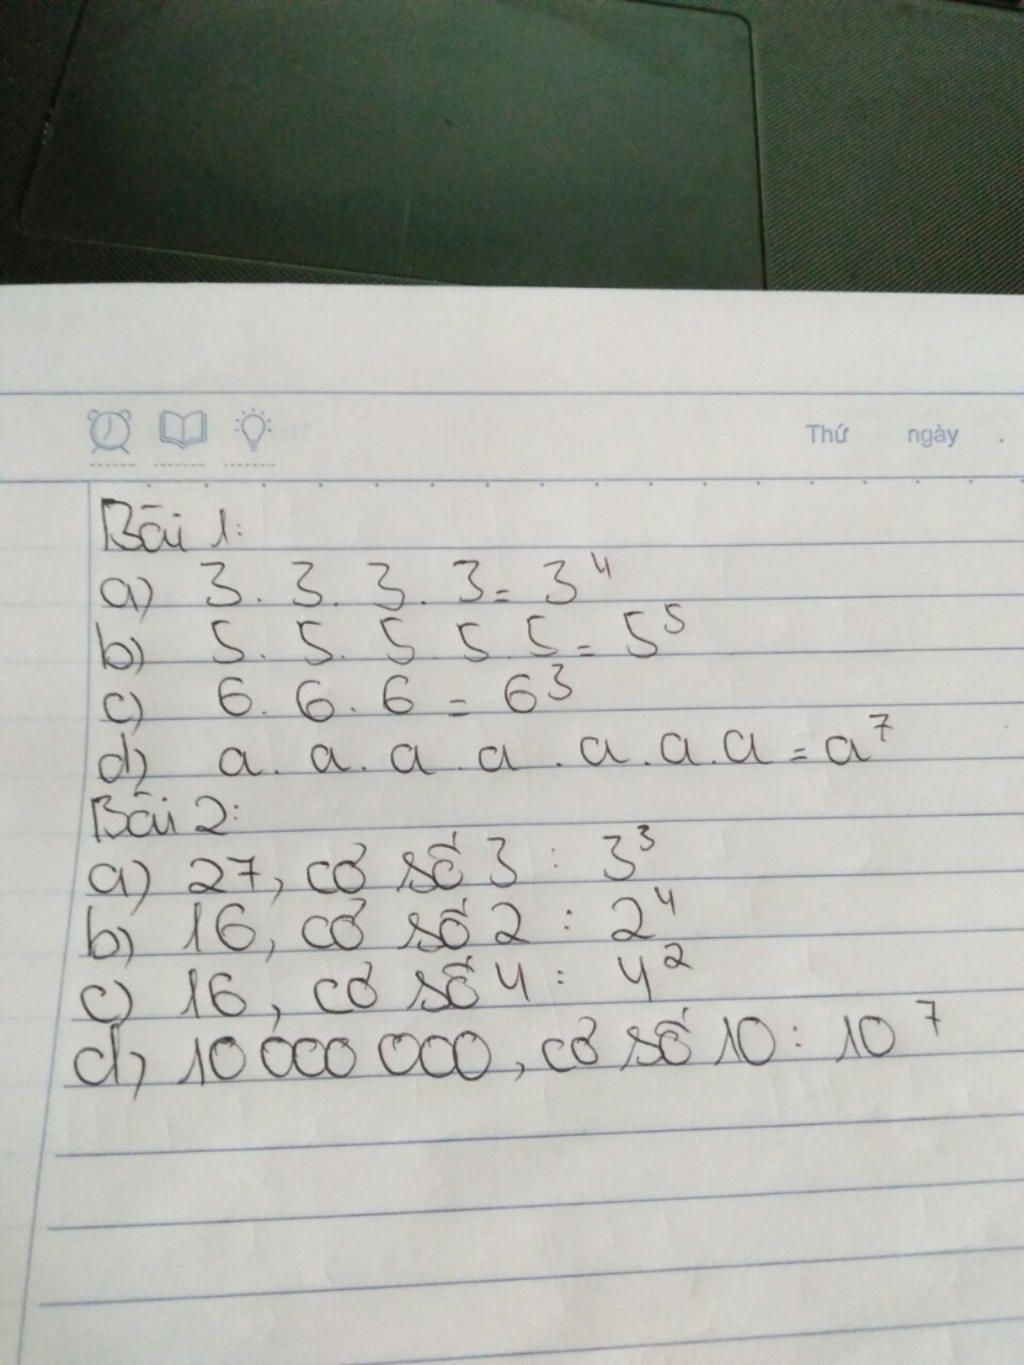 Thứ ngày .
Bài 1:
a) 3. 3. 3. 3= 3⁴
b) 5. 5. 5 5 5 = 5⁵
c) 6. 6. 6 = 6³
d) a. a. a . a . a . a. a = a⁷
Bài 2:
a) 27, cơ số 3 : 3³
b) 16, cơ số 2 : 2⁴
c) 16, cơ số 4 : 4²
d) 10 000 000, cơ số 10 : 10⁷